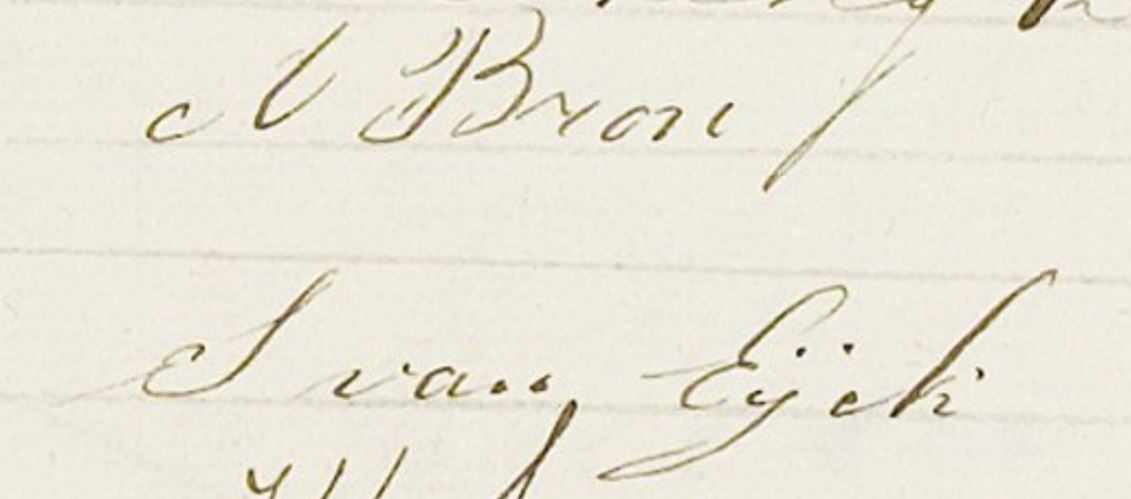 N Bron
S van Eijck